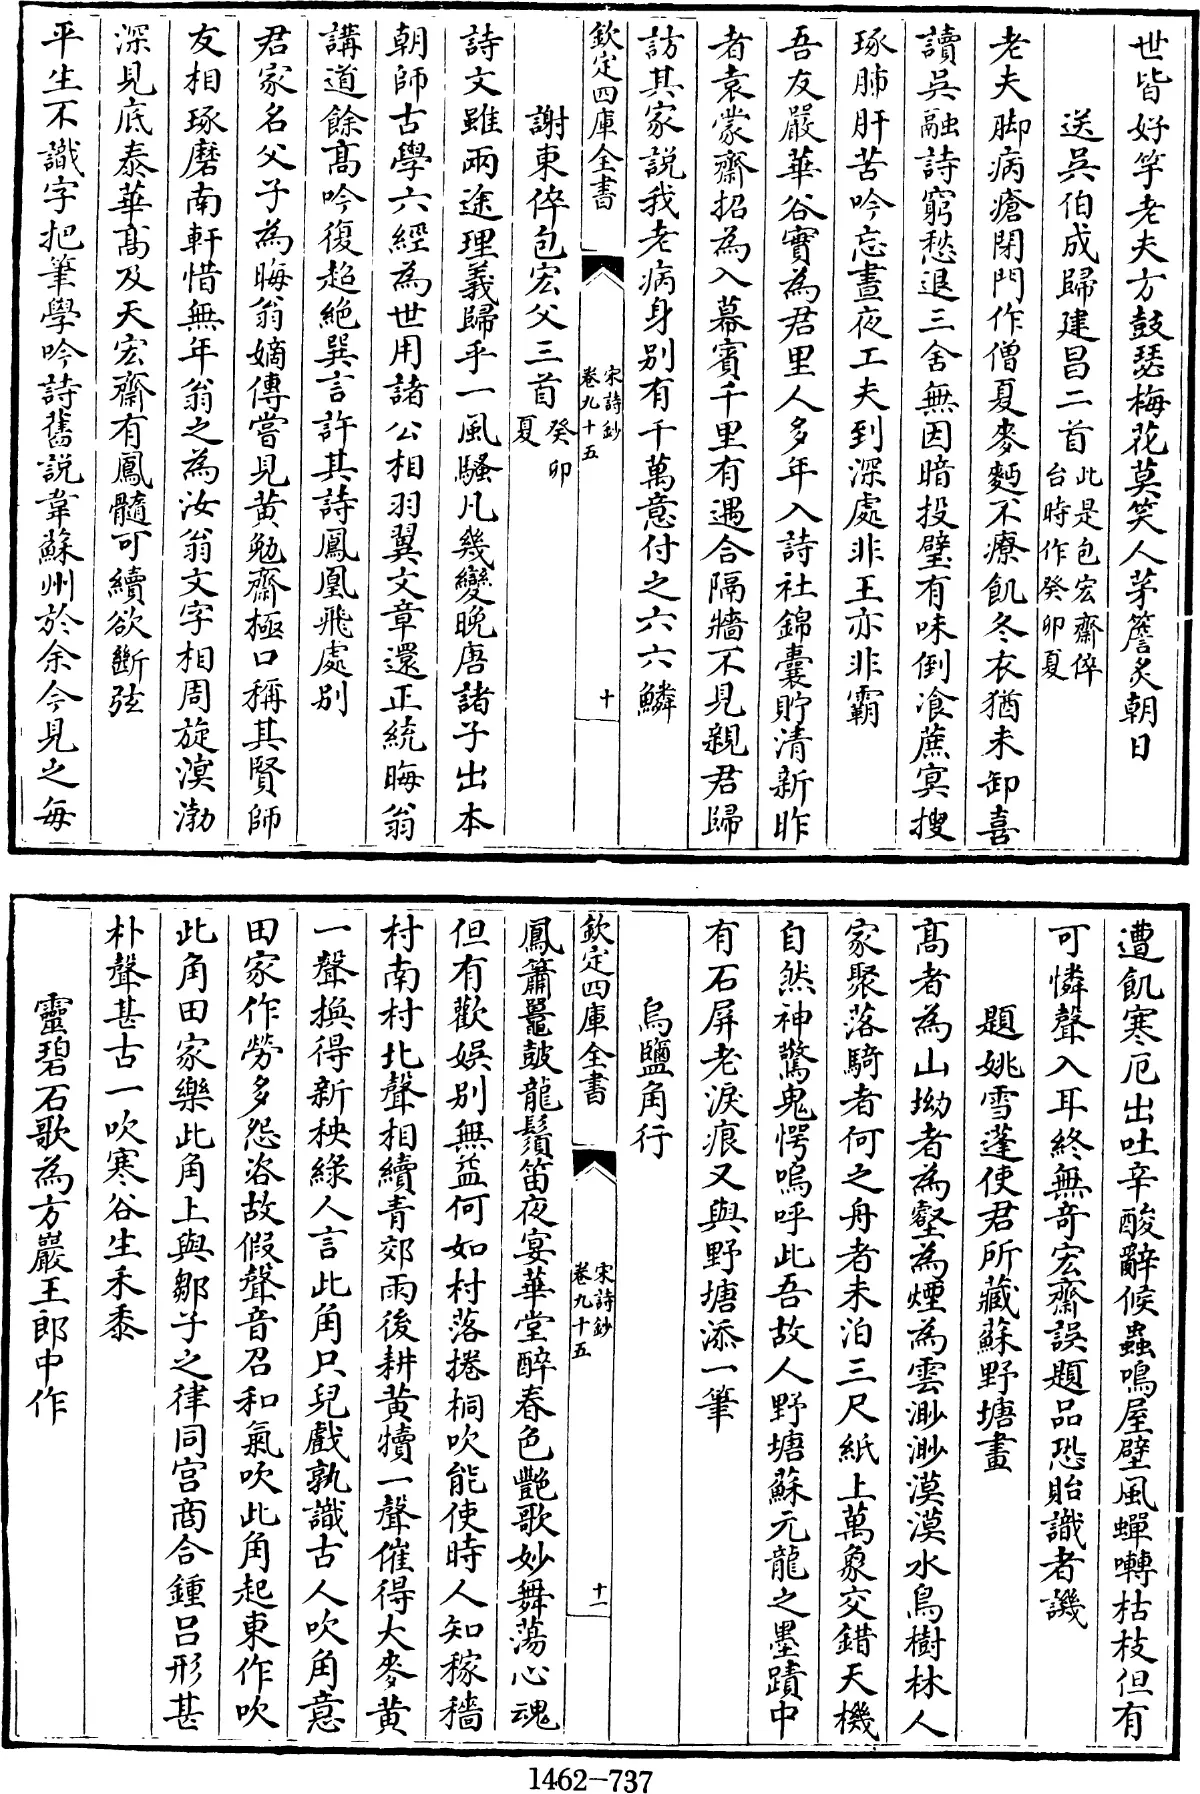 世皆好竽老夫方鼓瑟梅花莫笑人茅簷炙朝日
送吳伯成歸建昌二首此是包宏齋倅台時作癸卯夏
老夫脚病瘡閉門作僧夏麥麪不療飢冬衣猶未卸喜
讀吳融詩窮愁退三舍無因暗投璧有味倒飡蔗冥搜
琢肺肝苦吟忘晝夜工夫到深處非王亦非霸
吾友嚴華谷實為君里人多年入詩社錦囊貯清新昨
者袁蒙齋招為入幕賓千里有遇合隔牆不見親君歸
訪其家說我老病身别有千萬意付之六六鱗
欽定四庫全書
宋詩鈔
卷九十五
十
謝東倅包宏父三首癸卯夏
詩文雖兩途理義歸乎一風騷凡幾變晚唐諸子出本
朝師古學六經為世用諸公相羽翼文章還正統晦翁
講道餘髙吟復超絶巽言許其詩鳳凰飛處别
君家名父子為晦翁嫡傳嘗見黄勉齋極口稱其賢師
友相琢磨南軒惜無年翁之為汝翁文字相周旋溟渤
深見底泰華髙及天宏齋有鳳髓可續欲斷弦
平生不識字把筆學吟詩舊說韋蘇州於余今見之每
遭飢寒厄出吐辛酸辭候蟲鳴屋壁風蟬囀枯枝但有
可憐聲入耳終無奇宏齋誤題品恐貽識者譏
題姚雪蓬使君所藏蘇野塘畫
髙者為山坳者為壑為煙為雲渺渺漠漠水鳥樹林人
家聚落騎者何之舟者未泊三尺紙上萬象交錯天機
自然神驚鬼愕嗚呼此吾故人野塘蘇元龍之墨蹟中
有石屏老淚痕又與野塘添一筆
烏鹽角行
欽定四庫全書
宋詩鈔
卷九十五
十一
鳳簫鼉皷龍鬚笛夜宴華堂醉春色艷歌妙舞蕩心魂
但有歡娱别無益何如村落捲桐吹能使時人知稼穡
村南村北聲相續青郊雨後耕黄犢一聲催得大麥黄
一聲換得新秧緑人言此角只兒戲孰識古人吹角意
田家作勞多怨咨故假聲音召和氣吹此角起東作吹
此角田家樂此角上與鄒子之律同宫商合鍾吕形甚
朴聲甚古一吹寒谷生禾黍
靈碧石歌為方巖王郎中作
1462-737